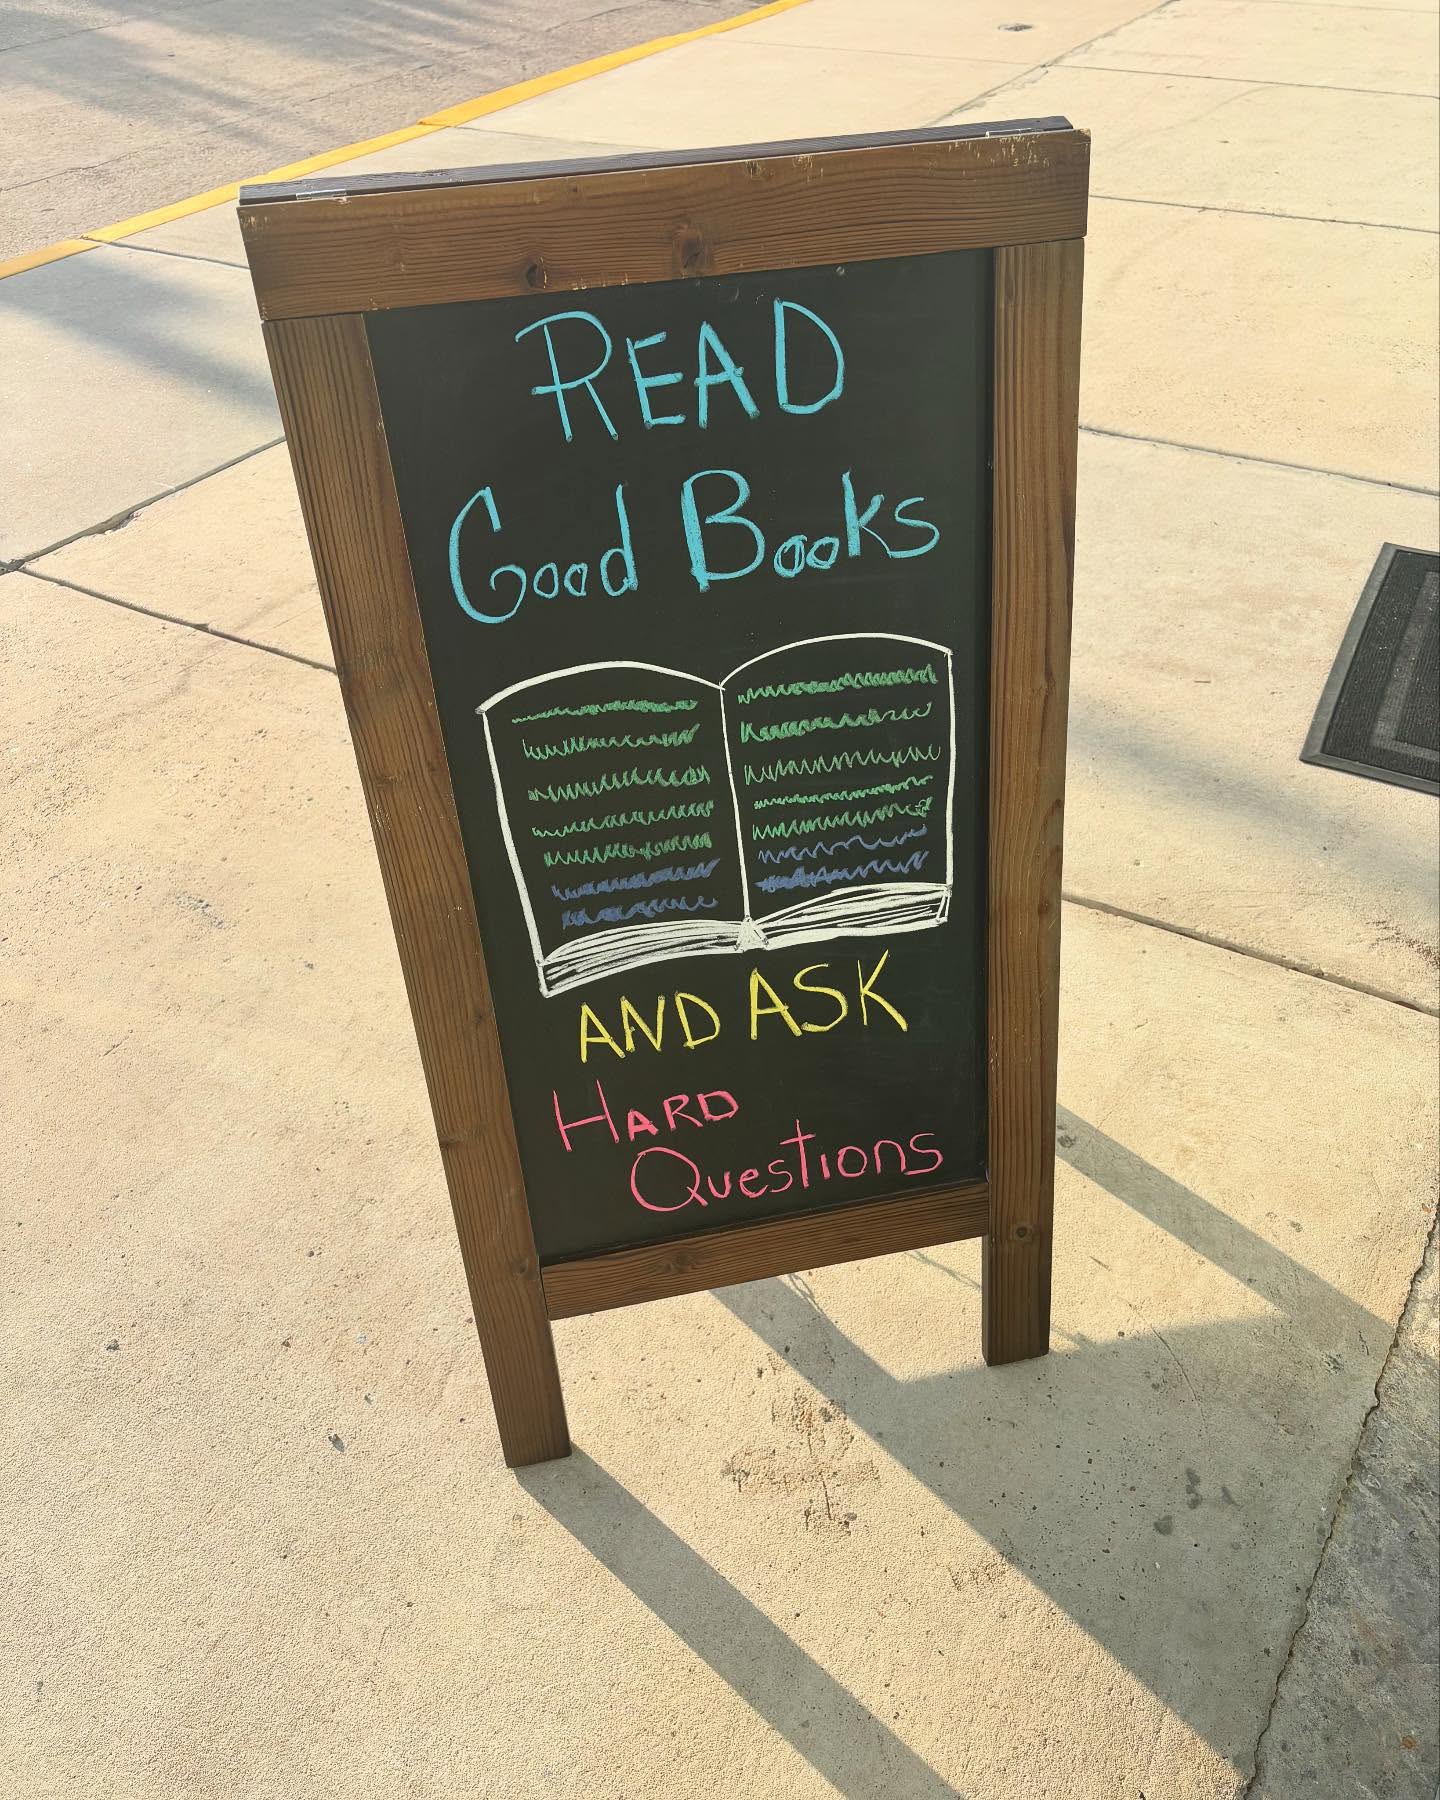 READ
Good Books
AND ASK
HARD
Questions